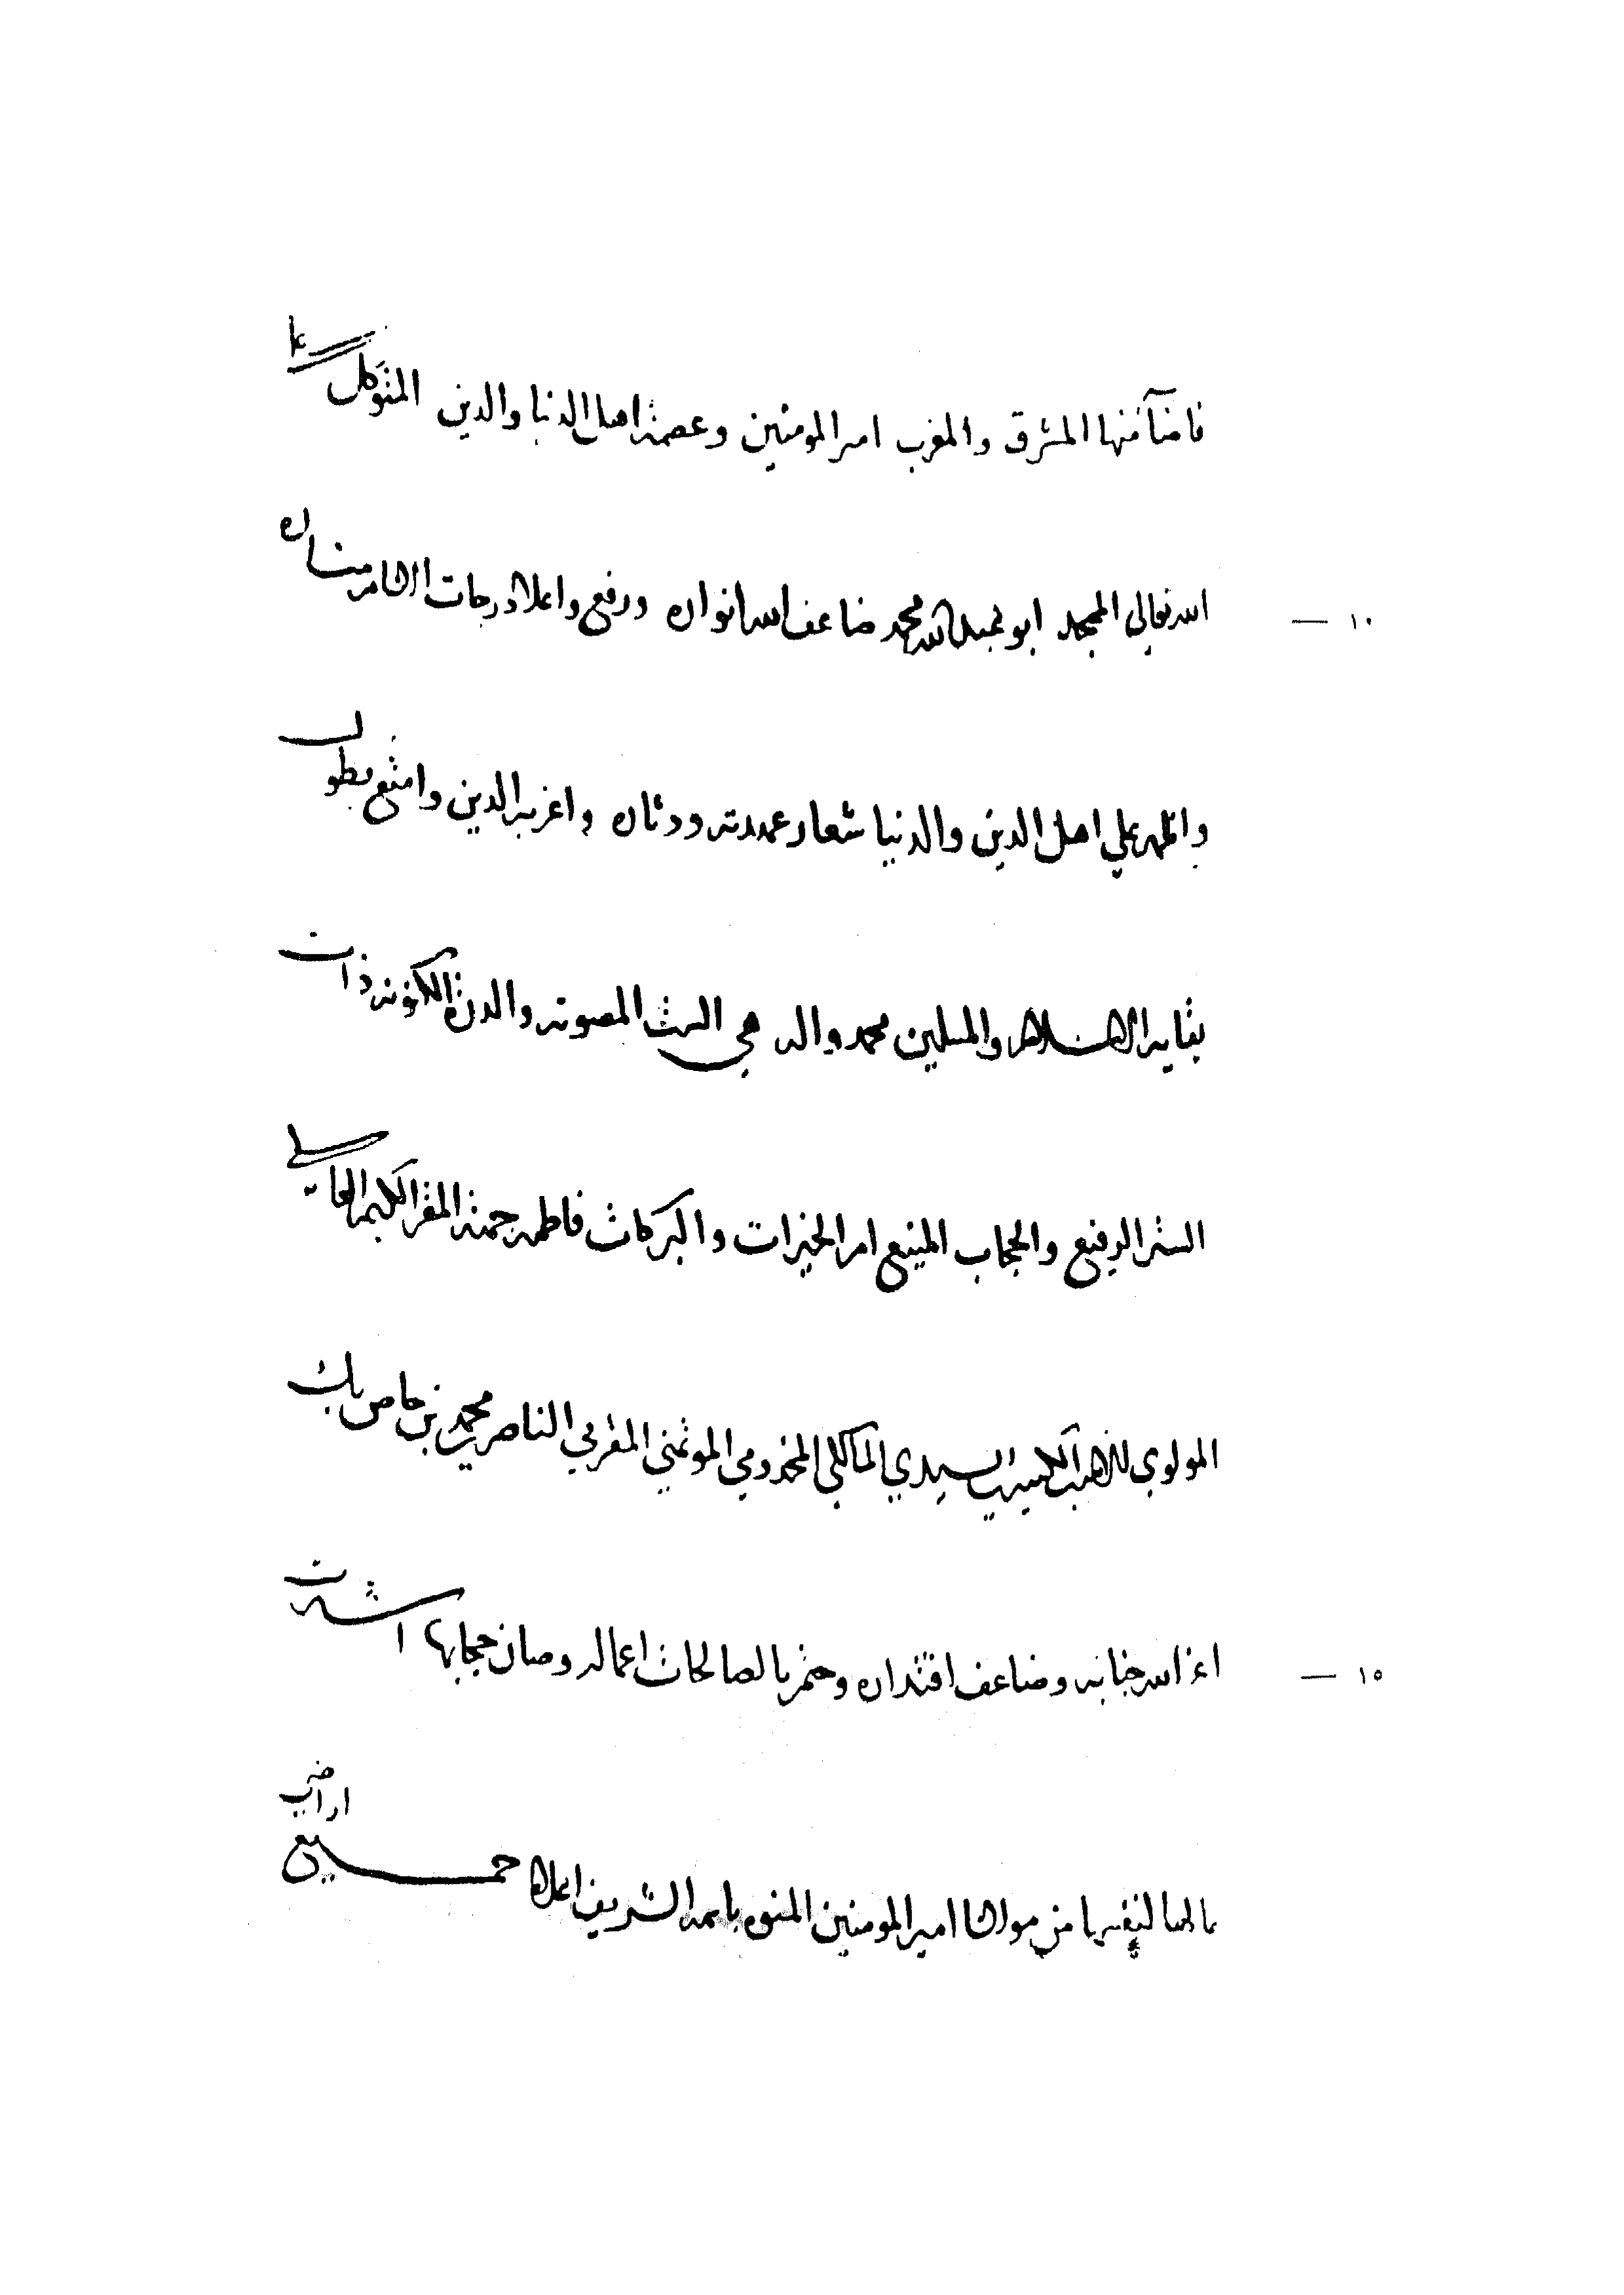 فاضآ منها المشرق والمغرب امير المومنين وعصمة اهل الدنيا والدين المتوكل على
١٠ — الله تعالى الممجد ابو عبد الله محمد ضاعف الله انواره ورفع واعلا درجات الانام مناره
واظهر على اهل الدين والدنيا شعار عهدته ودثاره واعز به الدين وامتع بطول
بقايه الاسلام والمسلمين محمد واله هي الست المصونه والدرة المكنونه ذات
الستر الرفيع والحجاب المنيع ام الخيرات والبركات فاطمه جهة المقر الكريم العالي
المولوي الاميري الكبيري السيدي المالكي المخدومي الموتمني المقربي الناصري محمد بن خاص بك
١٥ — اعز الله جنابه وضاعف اقتداره وختم بالصالحات اعماله وصان حجابها اشترت
بمالها لنفسها من مولانا امير المومنين المنوه باسمه الشريف اعلاه جميع
اراضي